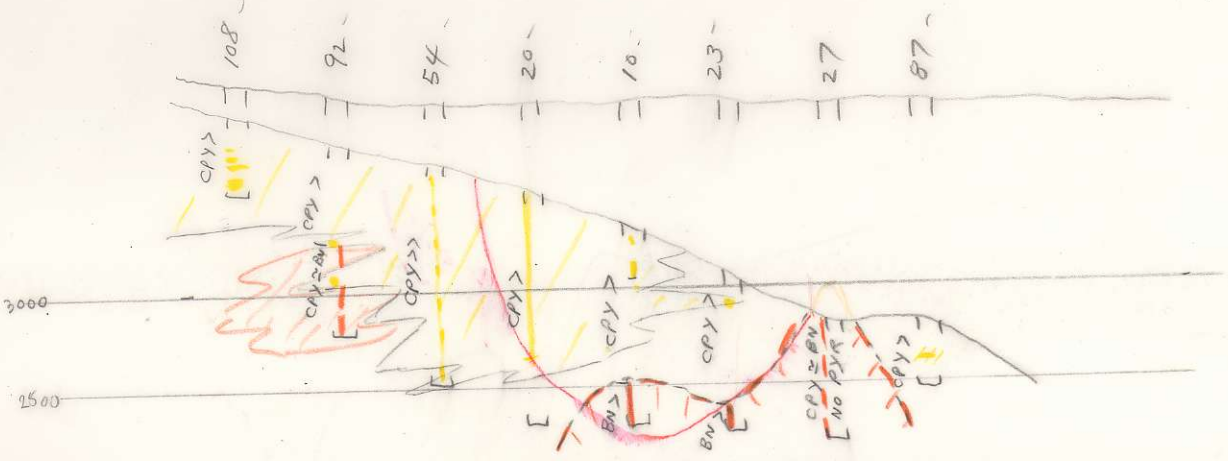 108-
92-
54-
20-
10-
23-
27
87-
CPY>
CPY>
CPY≃BN
CPY>>
CPY>
CPY>
CPY>
CPY≃BN
NO PYR
CPY>
BN>
BN>
3000
2500